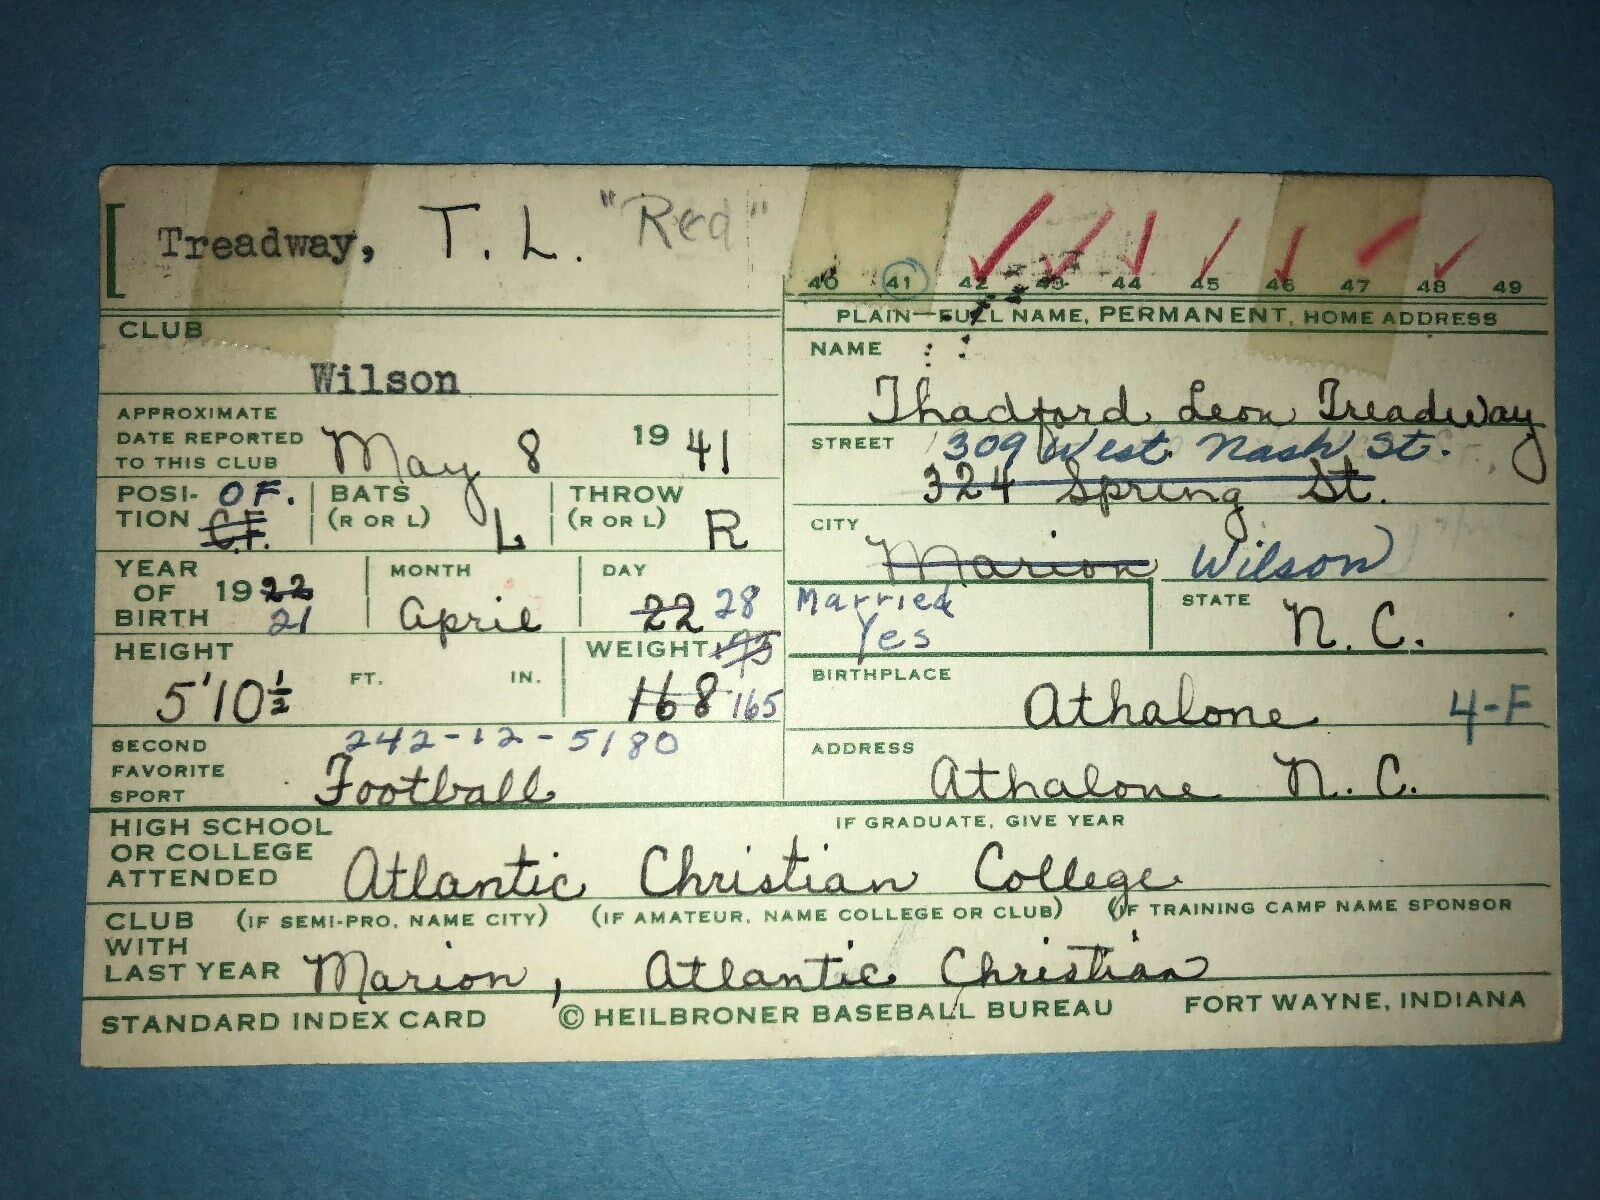 Treadway, T. L. "Red"
40 41 42 43 44 45 46 47 48 49
CLUB
Wilson
APPROXIMATE
DATE REPORTED
TO THIS CLUB
May 8 19 41
POSI-
TION
OF.
C.F.
BATS
(R OR L)
L
THROW
(R OR L)
R
YEAR
OF
BIRTH
19 22
21
MONTH
April
DAY
22 28
HEIGHT
5'10½
FT. IN.
WEIGHT
168 165
SECOND
FAVORITE
SPORT
242-12-5180
Football
PLAIN—FULL NAME, PERMANENT, HOME ADDRESS
NAME
Thadford Leon Treadway
STREET
309 West Nash St.
324 Spring St.
CITY
Marion Wilson
Married
Yes
STATE
N. C.
BIRTHPLACE
Athalone 4-F
ADDRESS
Athalone N. C.
HIGH SCHOOL
OR COLLEGE
ATTENDED
IF GRADUATE, GIVE YEAR
Atlantic Christian College
CLUB
WITH
LAST YEAR
(IF SEMI-PRO, NAME CITY) (IF AMATEUR, NAME COLLEGE OR CLUB) (IF TRAINING CAMP NAME SPONSOR
Marion, Atlantic Christian
STANDARD INDEX CARD © HEILBRONER BASEBALL BUREAU FORT WAYNE, INDIANA